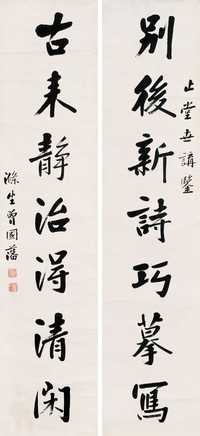 止堂世講鑒
別後新詩巧摹寫
古來靜治得清閑
滌生曾國藩